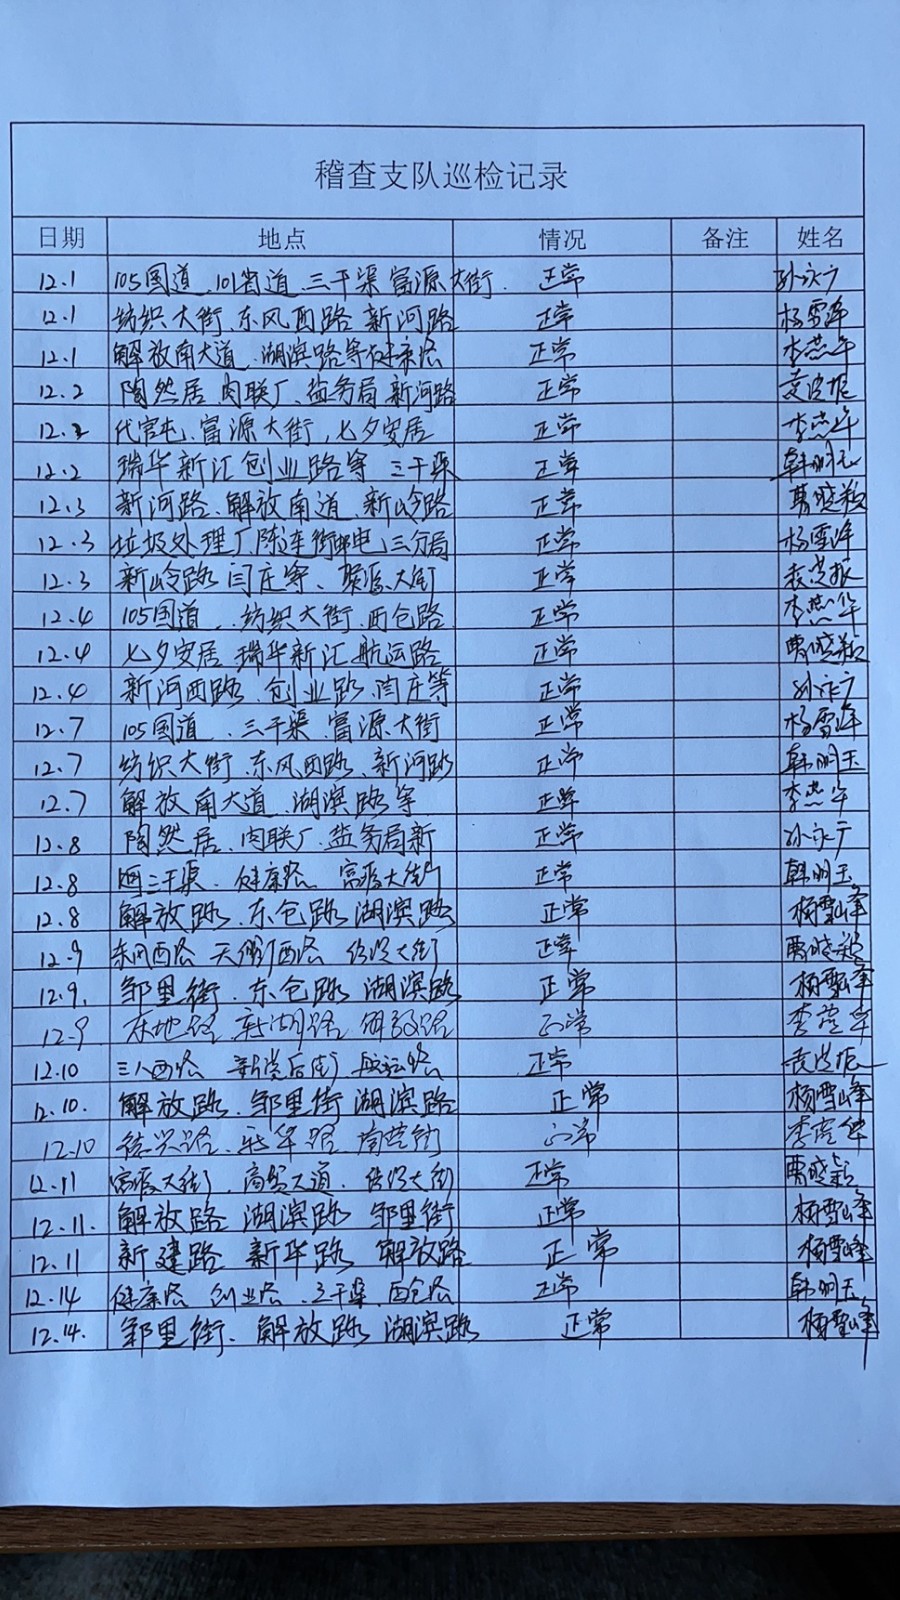 稽查支队巡检记录
日期 地点 情况 备注 姓名
12.1 105国道.101省道.三干渠富源大街. 正常 孙永广
12.1 纺织大街.东风西路 新河路 正常 杨雪峰
12.1 解放南大道.湖滨路等健康路 正常 李燕华
12.2 陶然居 肉联厂、盐务局 新河路 正常
12.2 代官屯.富源大街.七夕安居 正常 李燕华
12.2 瑞华新汇创业路等 三干渠 正常 韩明玉
12.3 新河路.解放南道.新岭路 正常 曹晓毅
12.3 垃圾处理厂陈连街邮电三分局 正常 杨雪峰
12.3 新岭路 闫庄等、大街 正常
12.4 105国道..纺织大街.西仓路 正常 李燕华
12.4 七夕安居 瑞华新汇航运路 正常 曹晓毅
12.4 新河西路.创业路.闫庄等 正常 孙永广
12.7 105国道.三干渠.富源大街 正常 杨雪峰
12.7 纺织大街.东风西路.新河路 正常 韩明玉
12.7 解放南大道.湖滨路等 正常 李燕华
12.8 陶然居.肉联厂.盐务局新 正常 孙永广
12.8 三干渠.健康路 富源大街 正常 韩明玉
12.8 解放路.东仓路.湖滨路 正常 杨雪峰
12.9 东风西路 天衢西路 纺织大街 正常 曹晓毅
12.9. 邹里街.东仓路 湖滨路 正常 杨雪峰
12.9 东地路 新湖路 解放路 正常 李燕华
12.10 三八西路 后街 航运路 正常
12.10. 解放路.邹里街 湖滨路 正常 杨雪峰
12.10 德兴路.新华路. 正常 李燕华
12.11 富源大街.商贸大道.纺织大街 正常 曹晓毅
12.11. 解放路 湖滨路 邹里街 正常 杨雪峰
12.11 新建路 新华路 解放路 正常 杨雪峰
12.14 健康路 创业路.三干渠.西仓路 正常 韩明玉
12.14. 邹里街.解放路 湖滨路 正常 杨雪峰